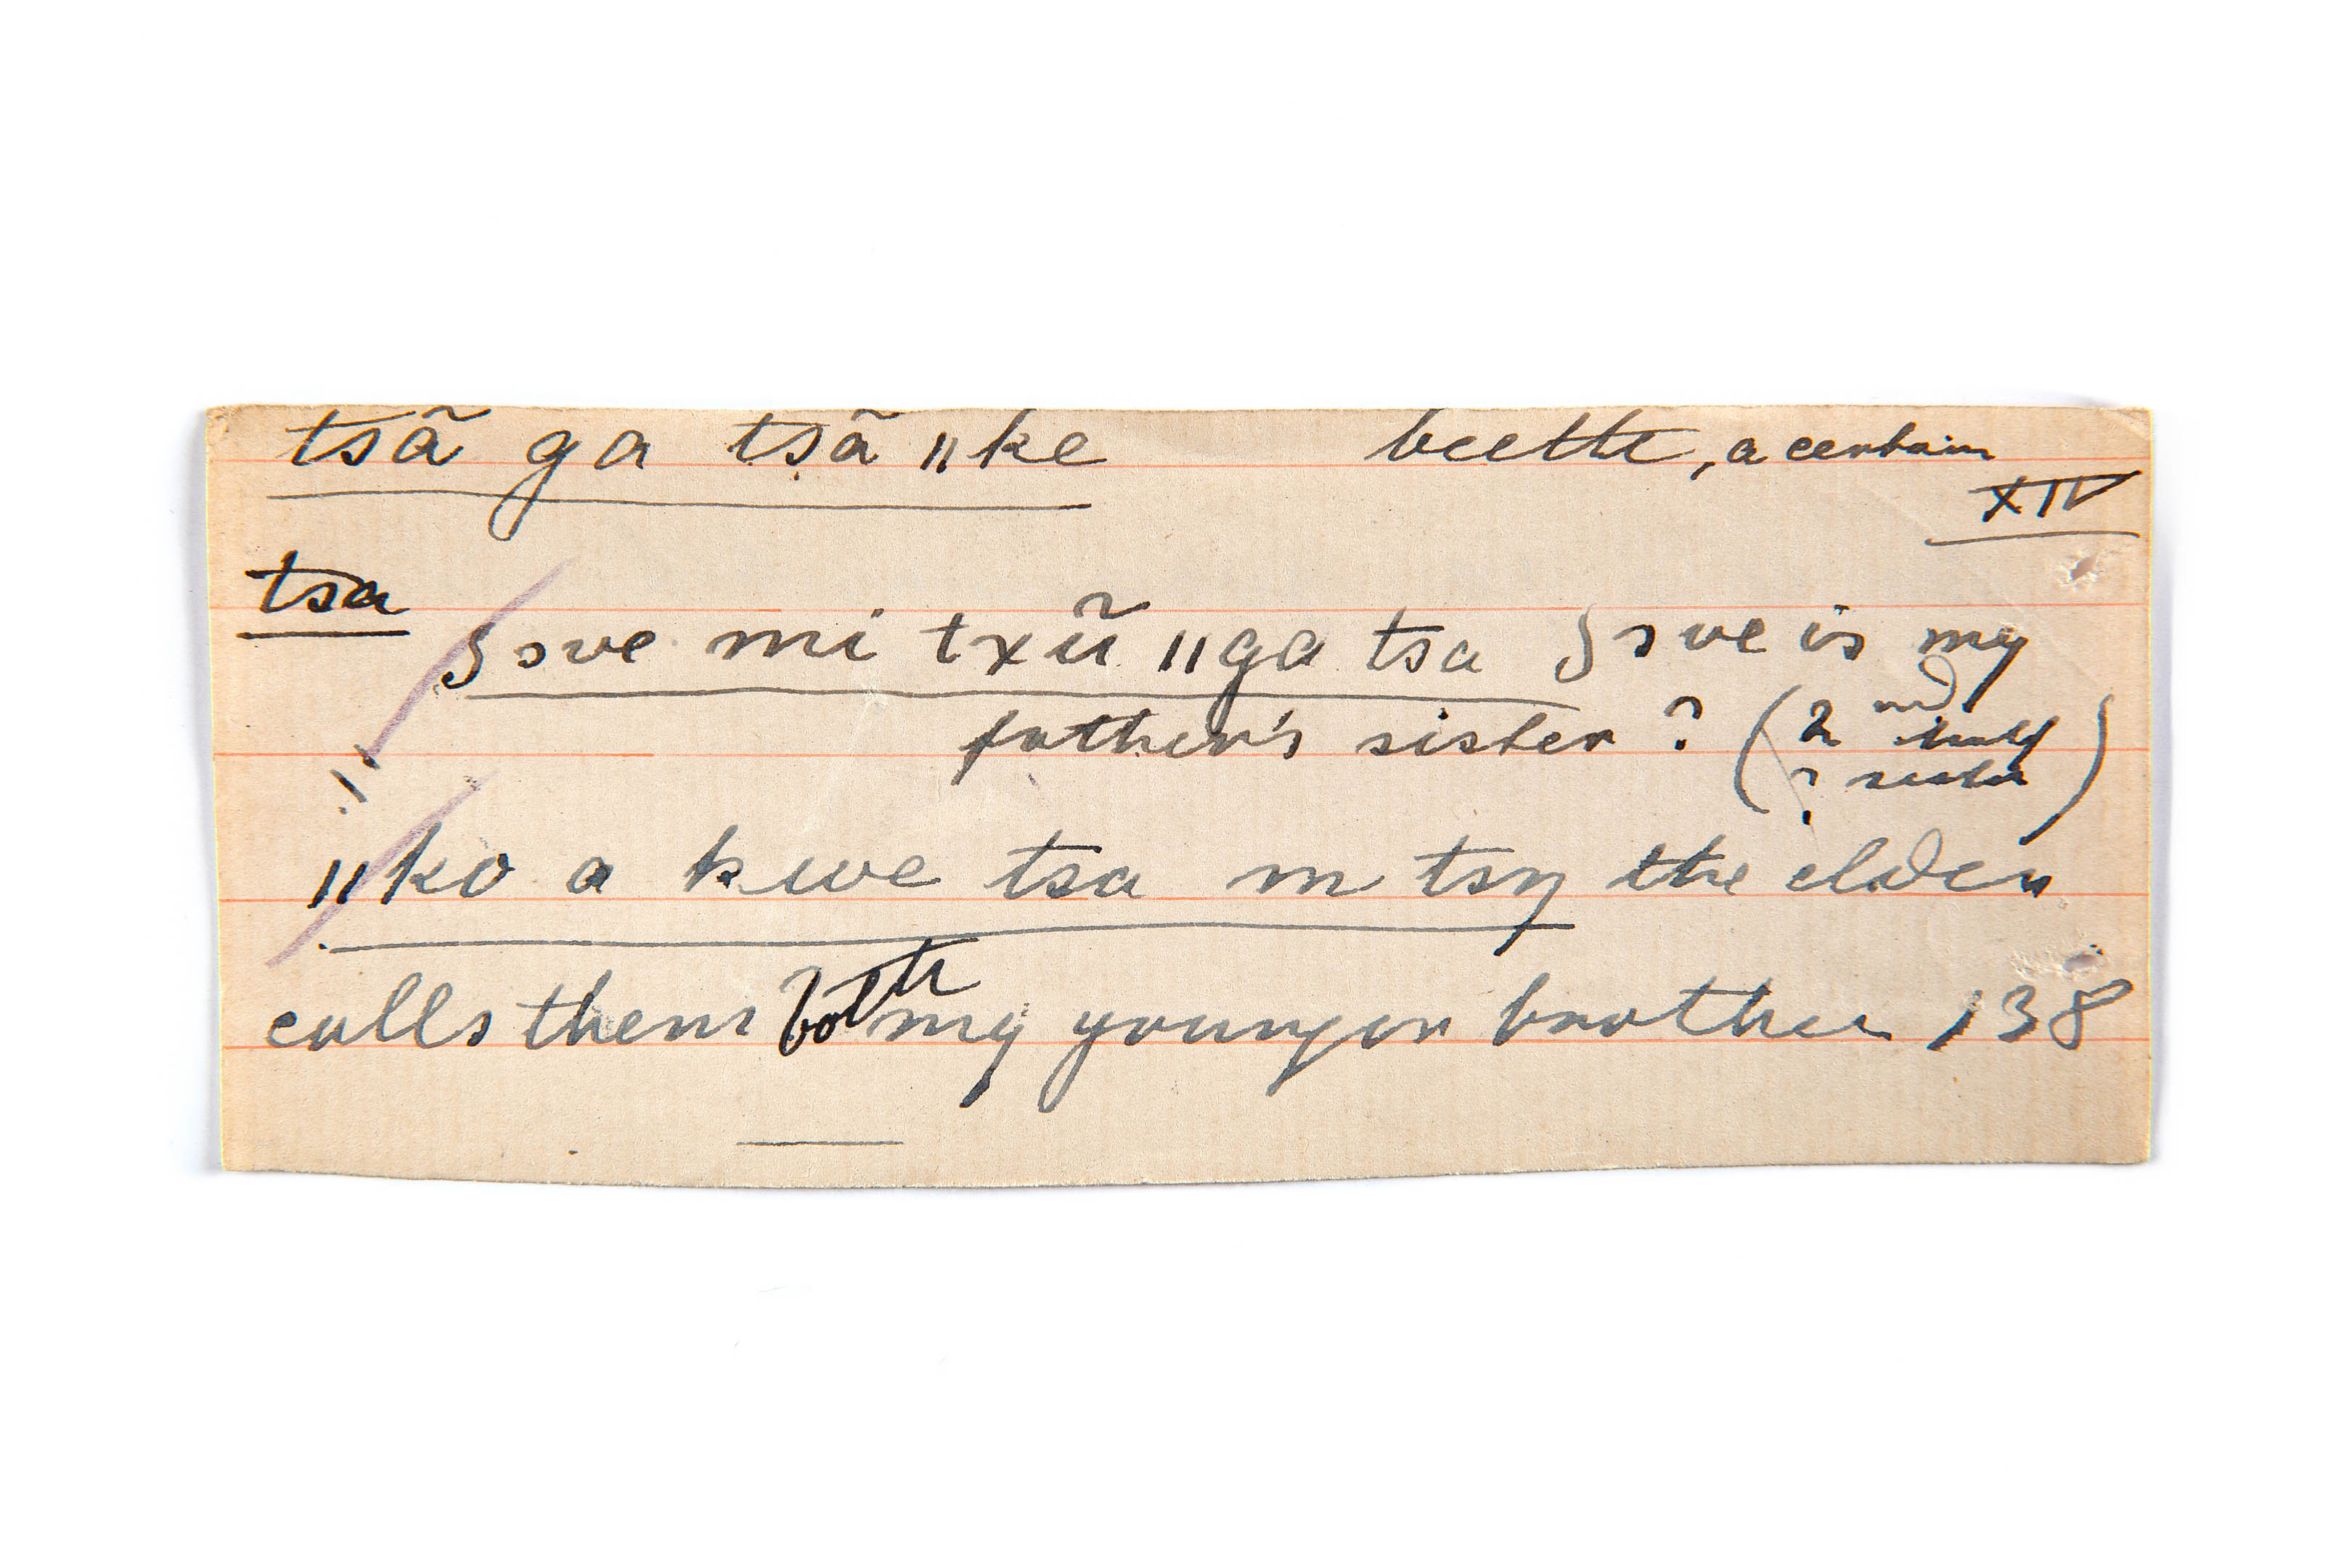 tsã ga tsã ǁke beetle, a certain
XIV
tsa
ʃove mi txũ ǁga tsa ʃove is my
father's sister? (2nd half
? sister)
ǁko a kwe tsa m tsŋ the elder
calls them both my younger brother 138